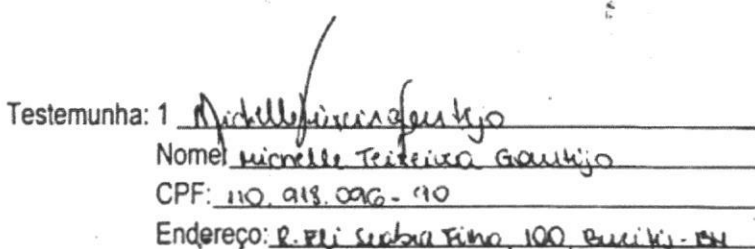 Testemunha: 1 Michelle
Nome: Michelle Teixeira Gontijo
CPF: 110.918.096-
Endereço: R. Eli Seabra Filho, 100 Buritis - BH